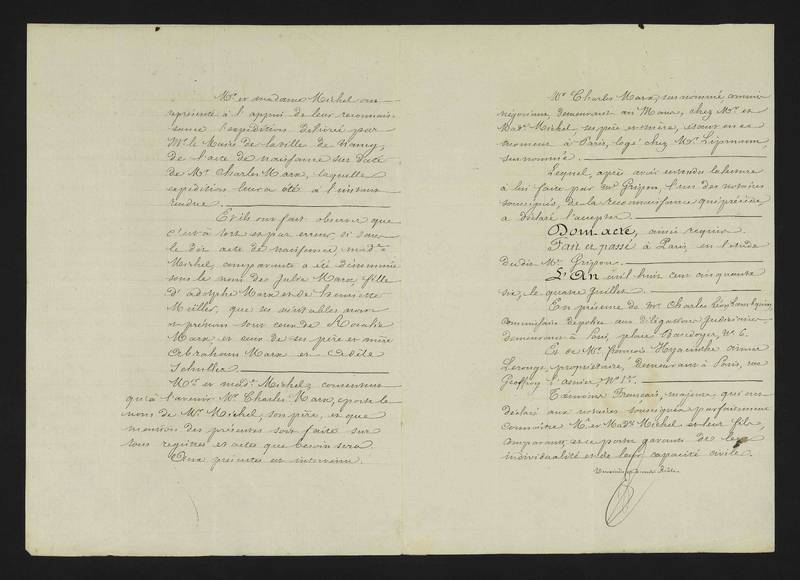 Mr et madame Michel ont
représenté à l'appui de leur reconnais-
sance l'expédition délivrée par
Mr le Maire de la ville de Nancy,
de l'acte de naissance sus daté
de Mr Charles Marx, laquelle
expédition leur a été à l'instant
rendue.
Et ils ont fait observer que
c'est à tort et par erreur, si dans
le dit acte de naissance made
Michel, comparante a été dénommée
sous le nom de Julie Marx fille
d'adolphe Marx et de henriette
Muller, que ses véritables nom
et prénom sont ceux de Rosalie
Marx et ceux de ses père et mère
Abraham Marx et Adèle
Schuller.
Mr et made Michel, consentent
qu'à l'avenir Mr Charles Marx, porte le
nom de Mr Michel, son père, et que
mention des présentes soit faite sur
tous registres et actes que besoin sera.
Aux présentes est intervenu.
Mr Charles Marx, sus nommé commis
négociant demeurant au Mans, chez Mr et
Made Michel, ses père et mère, étant en ce
moment à Paris, logé chez Mr Lipmann,
sus nommé.
Lequel, après avoir entendu la lecture
à lui faite par Mr Grison, l'un des notaires
soussignés, de la reconnaissance qui précède,
a déclaré l'accepter.
Dont acte, ainsi requis.
Fait et passé à Paris, en l'étude
dudit Mr Grison.
L'An mil huit cent cinquante
six, le quatre Juillet.
En présence de Mr Charles Léon
Commissaire deputé aux délégations Judiciaires
demeurant à Paris, place Baudoyer, No 6.
Et de Mr françois Hyacinthe
Lerouge, propriétaire, demeurant à Paris, rue
Geoffroy l'asnier, No 1er.
Témoins Français, majeurs qui ont
déclaré aux notaires soussignés parfaitement
connaître Mr et Made Michel et leur fils,
comparants et se porter garants de leur
individualité et de leur capacité civile.